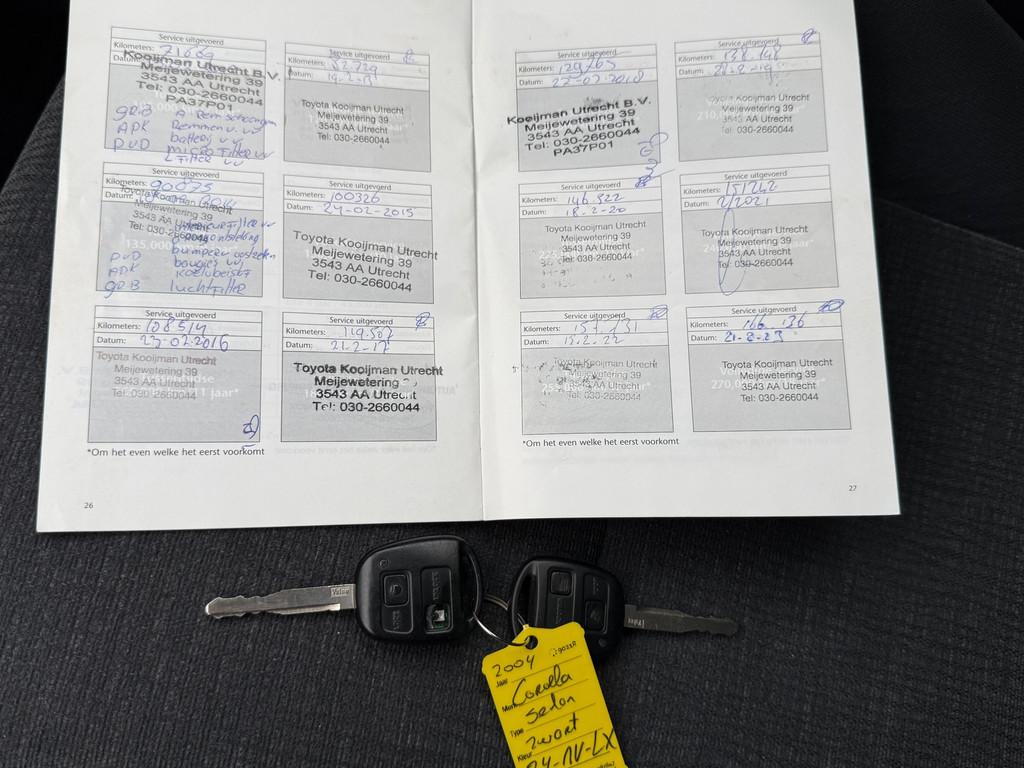 Service uitgevoerd
Kilometers: 71669
Datum:
Kooijman Utrecht B.V.
Meijewetering 39
3543 AA Utrecht
Tel: 030-2660044
PA37P01
GRB
APK Remmen
DVD batterij vv
micro Filter vv
Service uitgevoerd
Kilometers: 82729
Datum:
Toyota Kooijman Utrecht
Meijewetering 39
3543 AA Utrecht
Tel: 030-2660044
Service uitgevoerd
Kilometers: 90075
Datum:
Toyota Kooijman Utrecht
Meijewetering 39
3543 AA Utrecht
Tel: 030-2660044
135,000
DVD bougies vv
APK
GRB luchtfilter
Service uitgevoerd
Kilometers: 100326
Datum: 24-02-2015
Toyota Kooijman Utrecht
Meijewetering 39
3543 AA Utrecht
Tel: 030-2660044
Service uitgevoerd
Kilometers: 108514
Datum: 23-02-2016
Toyota Kooijman Utrecht
Meijewetering 39
3543 AA Utrecht
Tel: 030-2660044
Service uitgevoerd
Kilometers: 119.587
Datum: 21-2-17
Toyota Kooijman Utrecht
Meijewetering
3543 AA Utrecht
Tel: 030-2660044
*Om het even welke het eerst voorkomt
26
Service uitgevoerd
Kilometers: 129765
Datum: 22-02-2018
Kooijman Utrecht B.V.
Meijewetering 39
3543 AA Utrecht
Tel: 030-2660044
PA37P01
Service uitgevoerd
Kilometers: 138.148
Datum:
Toyota Kooijman Utrecht
Meijewetering 39
3543 AA Utrecht
Tel: 030-2660044
Service uitgevoerd
Kilometers: 146.522
Datum: 18-2-20
Toyota Kooijman Utrecht
Meijewetering 39
3543 AA Utrecht
Tel: 030-2660044
Service uitgevoerd
Kilometers: 151242
Datum: 2/2021
Toyota Kooijman Utrecht
Meijewetering 39
3543 AA Utrecht
Tel: 030-2660044
Service uitgevoerd
Kilometers: 157.131
Datum:
Toyota Kooijman Utrecht
Meijewetering 39
3543 AA Utrecht
Tel: 030-2660044
Service uitgevoerd
Kilometers: 166.136
Datum: 21-2-23
Toyota Kooijman Utrecht
Meijewetering 39
3543 AA Utrecht
Tel: 030-2660044
270,000
*Om het even welke het eerst voorkomt
27
Valeo
LOCK
Jaar 2004
Merk Corolla
Type Sedan
Kleur zwart